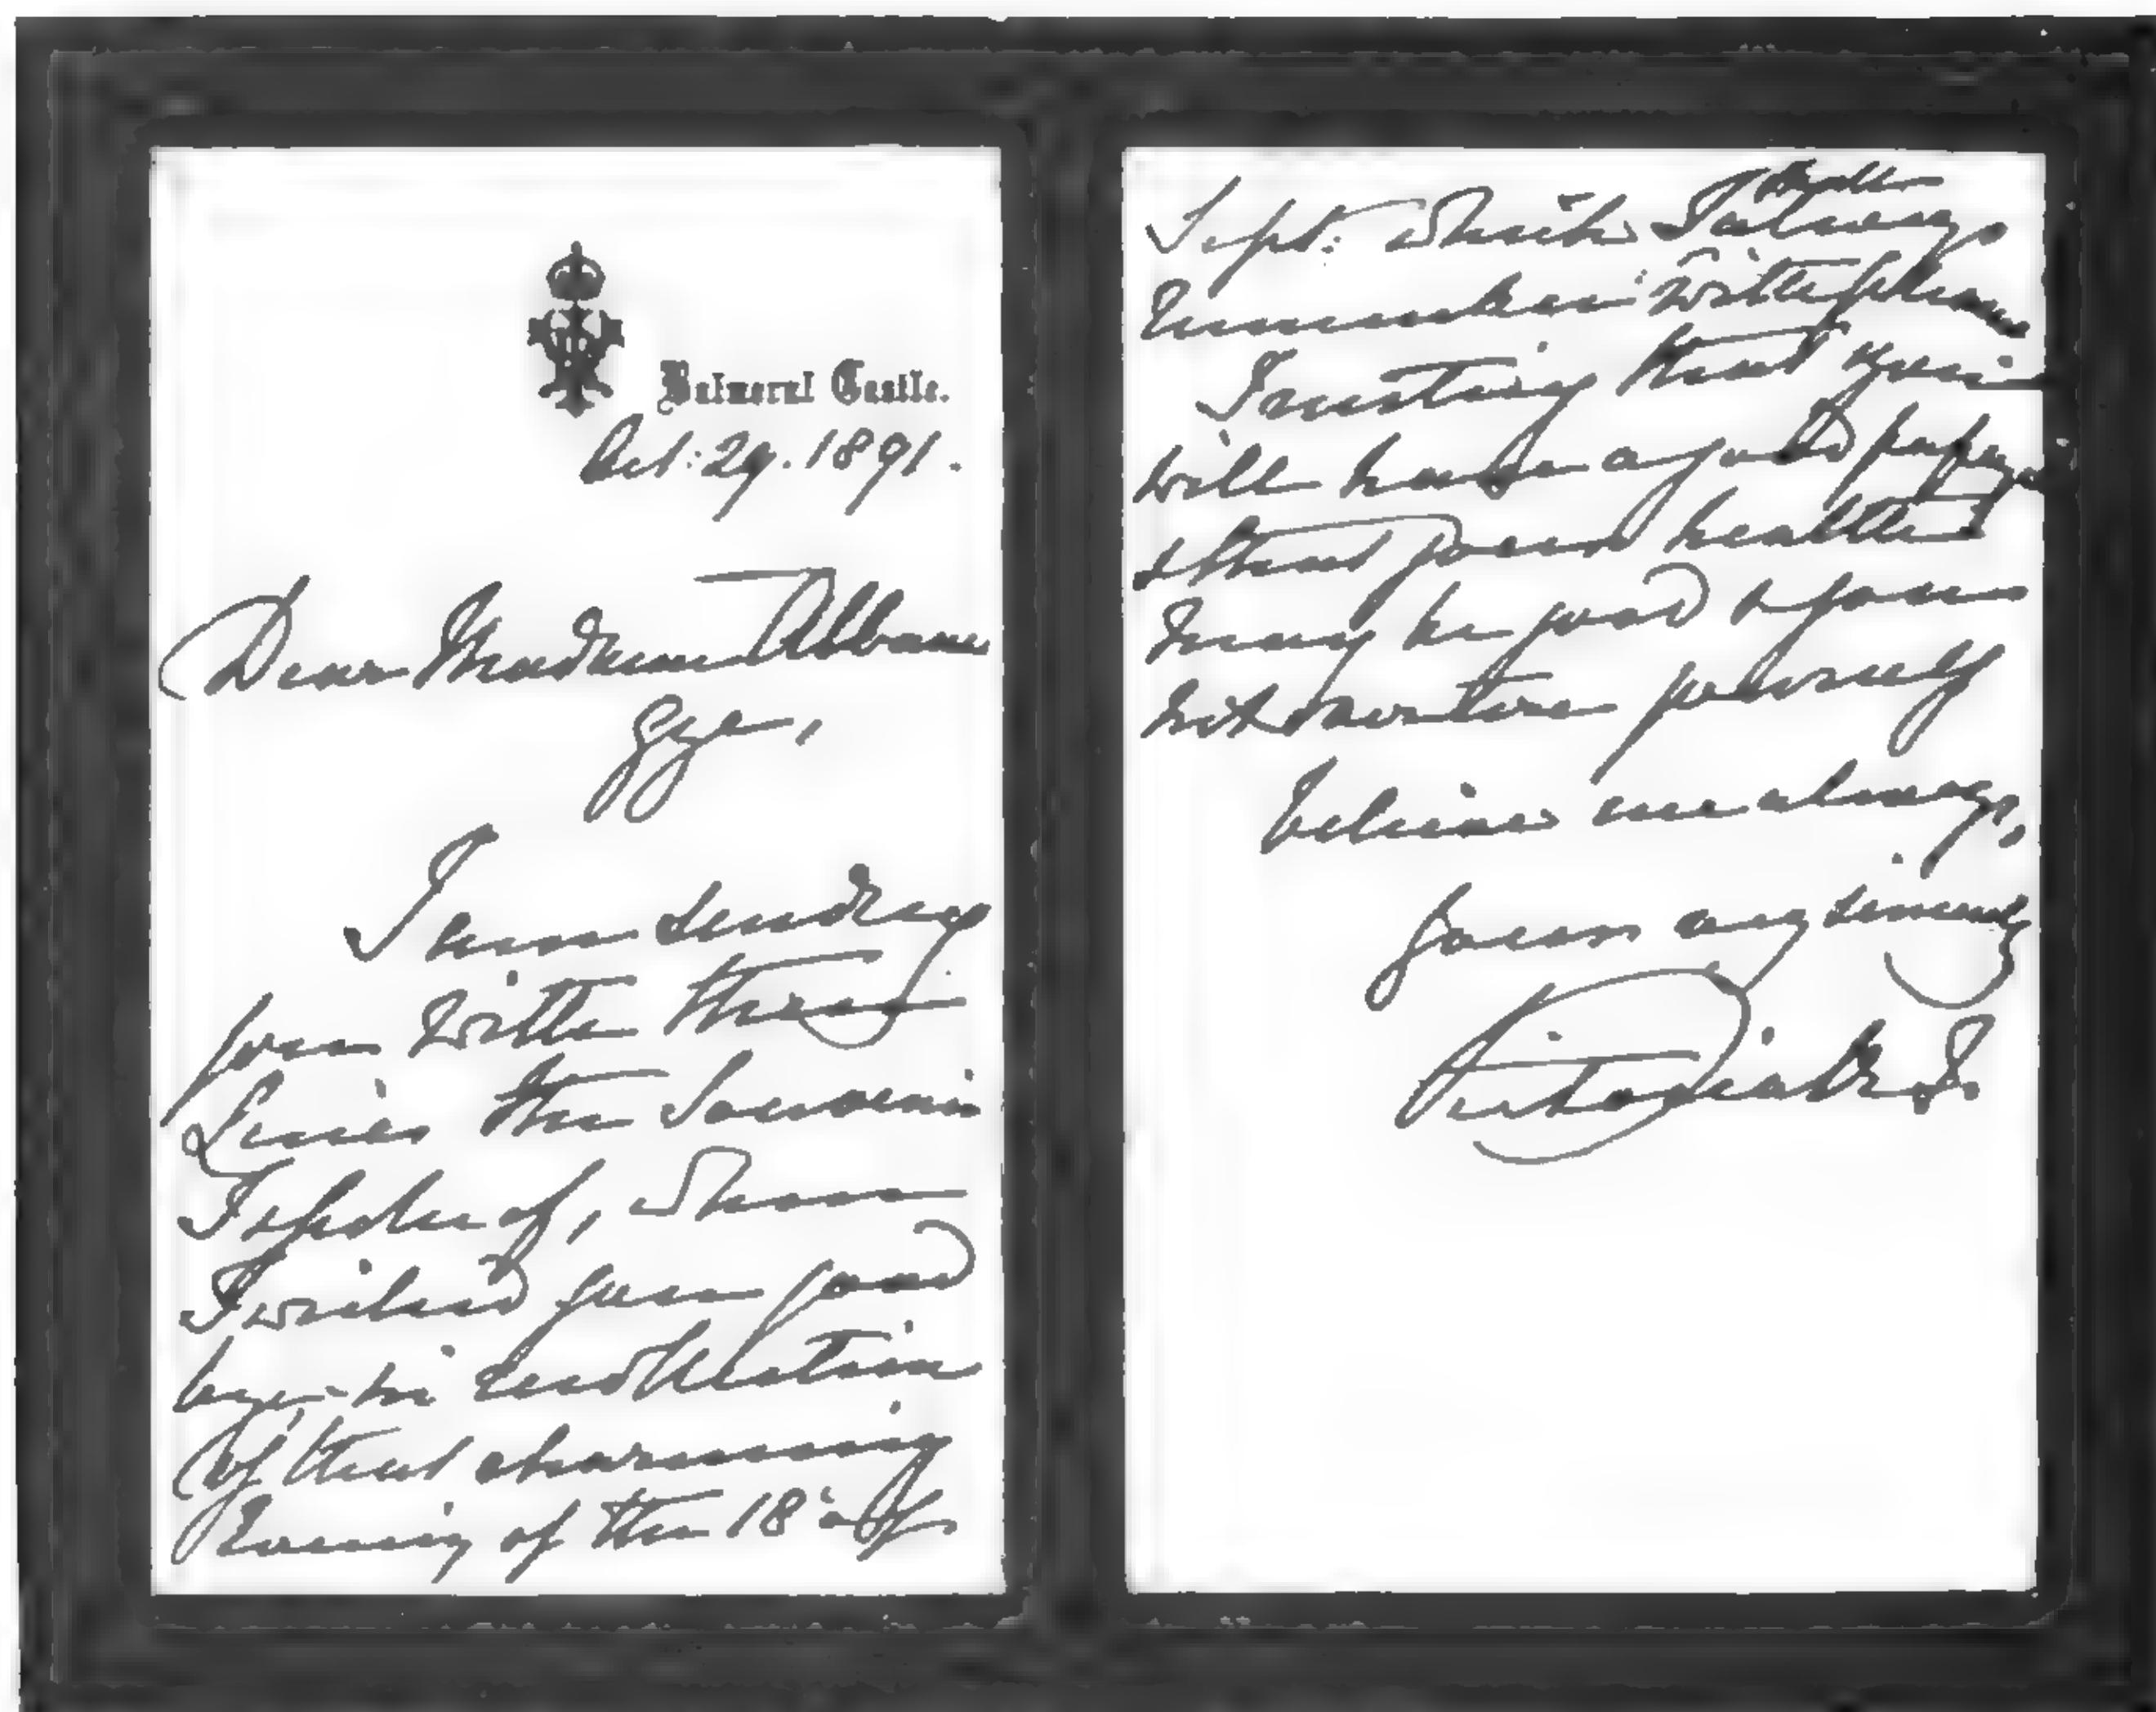 Balmoral Castle.
Oct: 29. 1891.
Dear Madame Albani
Gye,
I am sending
you with these
Lines the Souvenir
I spoke of, when
I wished you good
bye - in recollection
of that charming
Evening of the 18th of
Sept: which I shall
always
remember with pleasure
Trusting that you
will have a good passage
& that your health
may be good & you
not overtire yourself
believe me always,
yours very sincerely
Victoria R. I.